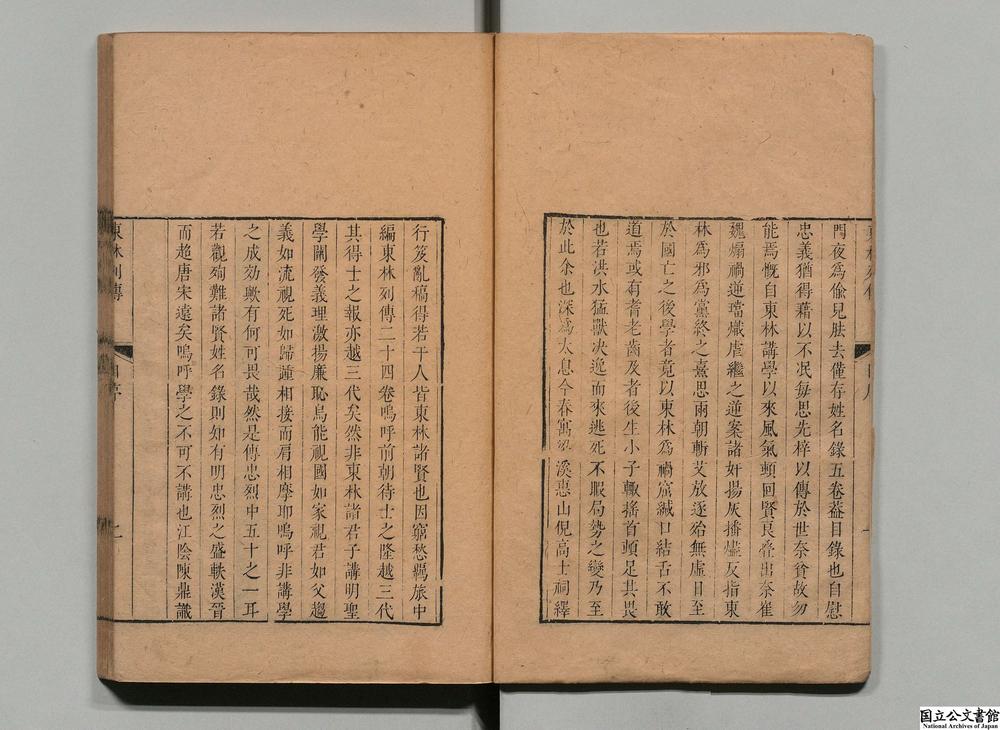 門夜爲偷兒胠去僅存姓名錄五卷葢目錄也自慰
忠義猶得藉以不泯每思先梓以傳於世奈貧故勿
能焉慨自東林講學以來風氣頓回賢良疊出奈崔
魏煽禍逆璫熾虐繼之逆案諸奸揚灰播燼反指東
林爲邪爲黨終之熹思兩朝斬艾放逐殆無虛日至
於國亡之後學者竟以東林爲禍窟緘口結舌不敢
道焉或有耆老齒及者後生小子輙搖首頓足其畏
也若洪水猛獸决逸而來逃死不暇局勢之變乃至
於此余也深爲太息今春寓溪惠山倪高士祠繹
行笈亂稿得若干人皆東林諸賢也因窮愁羈旅中
編東林列傳二十四卷嗚呼前朝待士之隆越三代
其得士之報亦越三代矣然非東林諸君子講明聖
學闡發義理激揚廉恥烏能視國如家視君如父趨
義如流視死如歸踵相接而肩相摩耶嗚呼非講學
之成効歟有何可畏哉然是傳忠烈中五十之一耳
若觀殉難諸賢姓名錄則如有明忠烈之盛軼漢晉
而超唐宋遠矣嗚呼學之不可不講也江陰陳鼎識
東林列傳
国立公文書館
National Archives of Japan